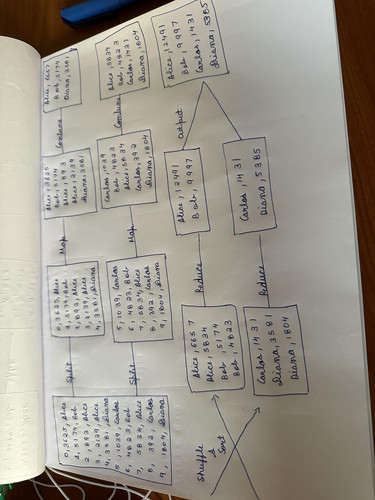 0,3625, Alice
1, 5174, Bob
2, 893, Alice
3, 2139, Alice
4, 3581, Diana
5, 1039, Carlos
6, 4823, Bob
7, 5834, Alice
8, 392, Carlos
9, 1804, Diana
Split
Split
0, 3625, Alice
1, 5174, Bob
2, 893, Alice
3, 2139, Alice
4, 3581, Diana
5, 1039, Carlos
6, 4823, Bob
7, 5834, Alice
8, 392, Carlos
9, 1804, Diana
Map
Map
Alice, 3625
Bob, 5174
Alice, 893
Alice, 2139
Diana, 3581
Carlos, 1039
Bob, 4823
Alice, 5834
Carlos, 392
Diana, 1804
Combine
Combine
Alice, 6657
Bob, 5174
Diana, 3581
Alice, 5834
Bob, 4823
Carlos, 1431
Diana, 1804
Shuffle
&
Sort
Alice, 6657
Alice, 5834
Bob, 5174
Bob, 4823
Carlos, 1431
Diana, 3581
Diana, 1804
Reduce
Reduce
Alice, 12491
Bob, 9997
Carlos, 1431
Diana, 5385
Output
Alice, 12491
Bob, 9997
Carlos, 1431
Diana, 5385